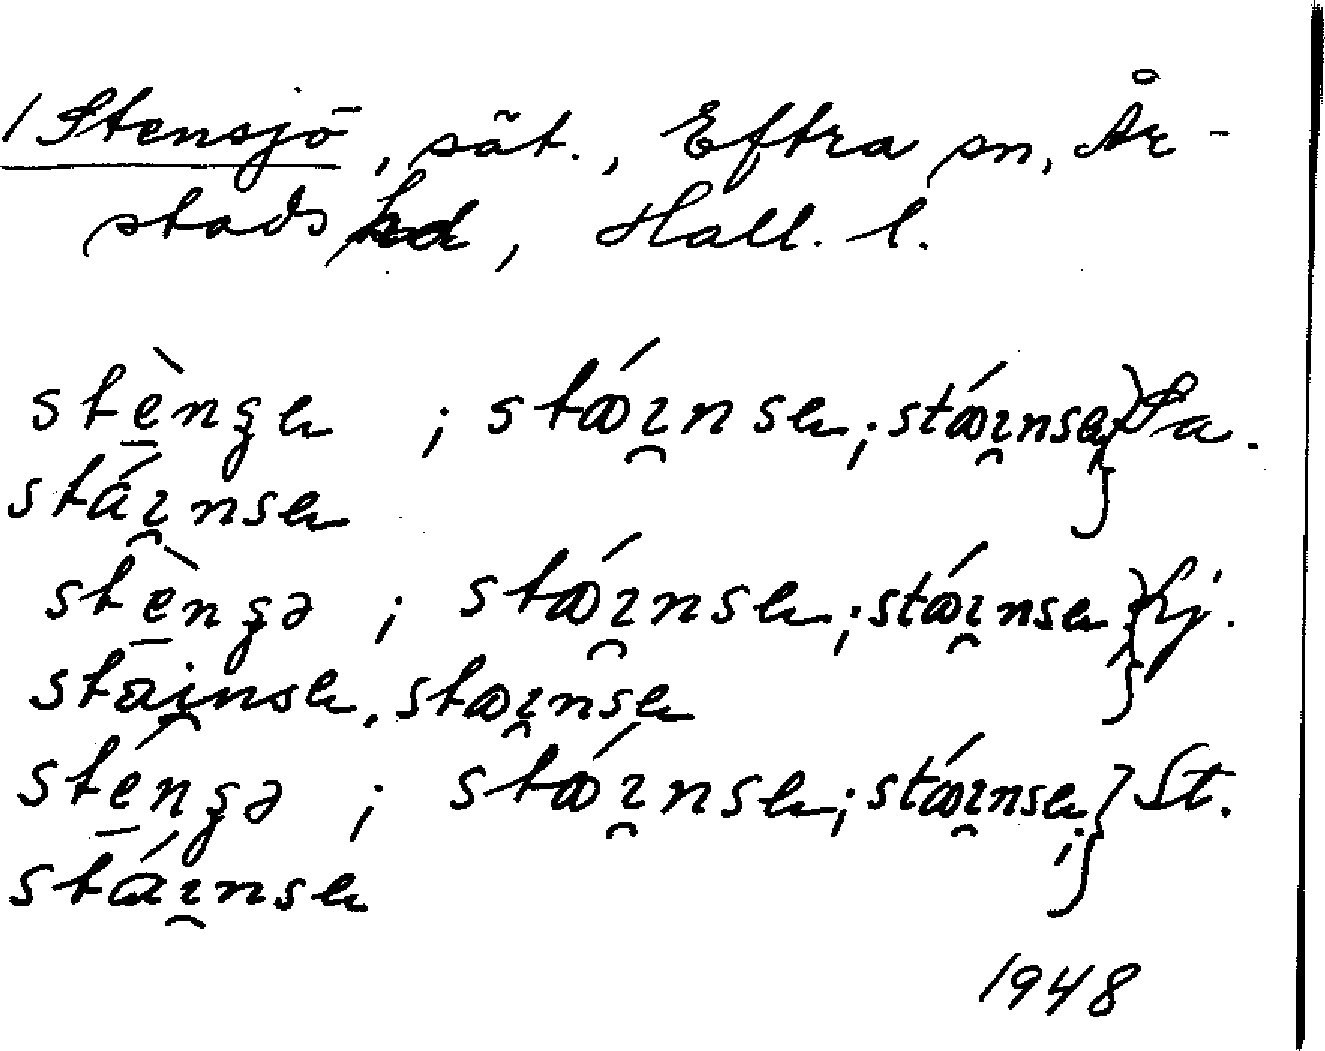 1 Stensjö, sät., Eftra sn, År-
stads hd, Hall. l.
stè̱nʂɐ ; stǿɪ̯nsɐ; stǿɪ̯nsɐ; Sa.
stáɪ̯nsɐ
stè̱nʂə ; stǿɪ̯nsɐ; stǿɪ̯nsɐ; Lj.
stáɪ̯nsɐ, støɪ̯nsɐ
sté̱nʂə ; stǿɪ̯nsɐ; stǿɪ̯nsɐ; St.
stáɪ̯nsɐ
1948